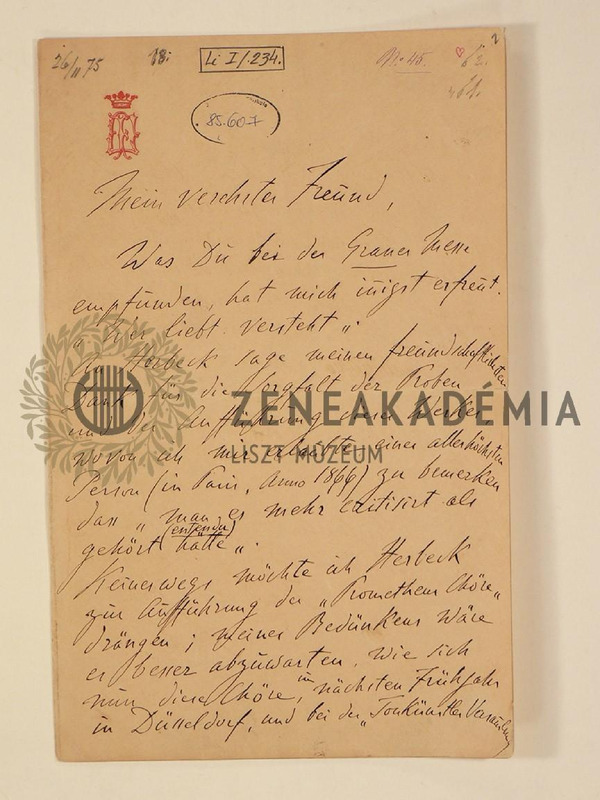 2
26/11 75 18: Li I/234. No. 45. 62.
85.607 161.
Mein verehrter Freund,
Was Du bei der Graner Messe
empfunden, hat mich iñigst erfreut.
„Wer liebt versteht“
Herbeck sage meinen freundschaftlichsten
Dank für die Sorgfalt der Proben
und der Aufführung dieses Werkes,
wovon ich mir erlaubte einer allerhöchsten
Person (in Paris, Anno 1866) zu bemerken
dass „man es mehr critisirt als
(entendu)
gehört hätte“.
Keineswegs möchte ich Herbeck
zur Aufführung der „Prometheus Chöre“
drängen; meines Bedünkens wäre
es besser abzuwarten, wie sich
nun diese Chöre, im nächsten Frühjahr
in Düsseldorf, und bei der „Tonkünstler Versamlung
ZENEAKADÉMIA
LISZT MÚZEUM